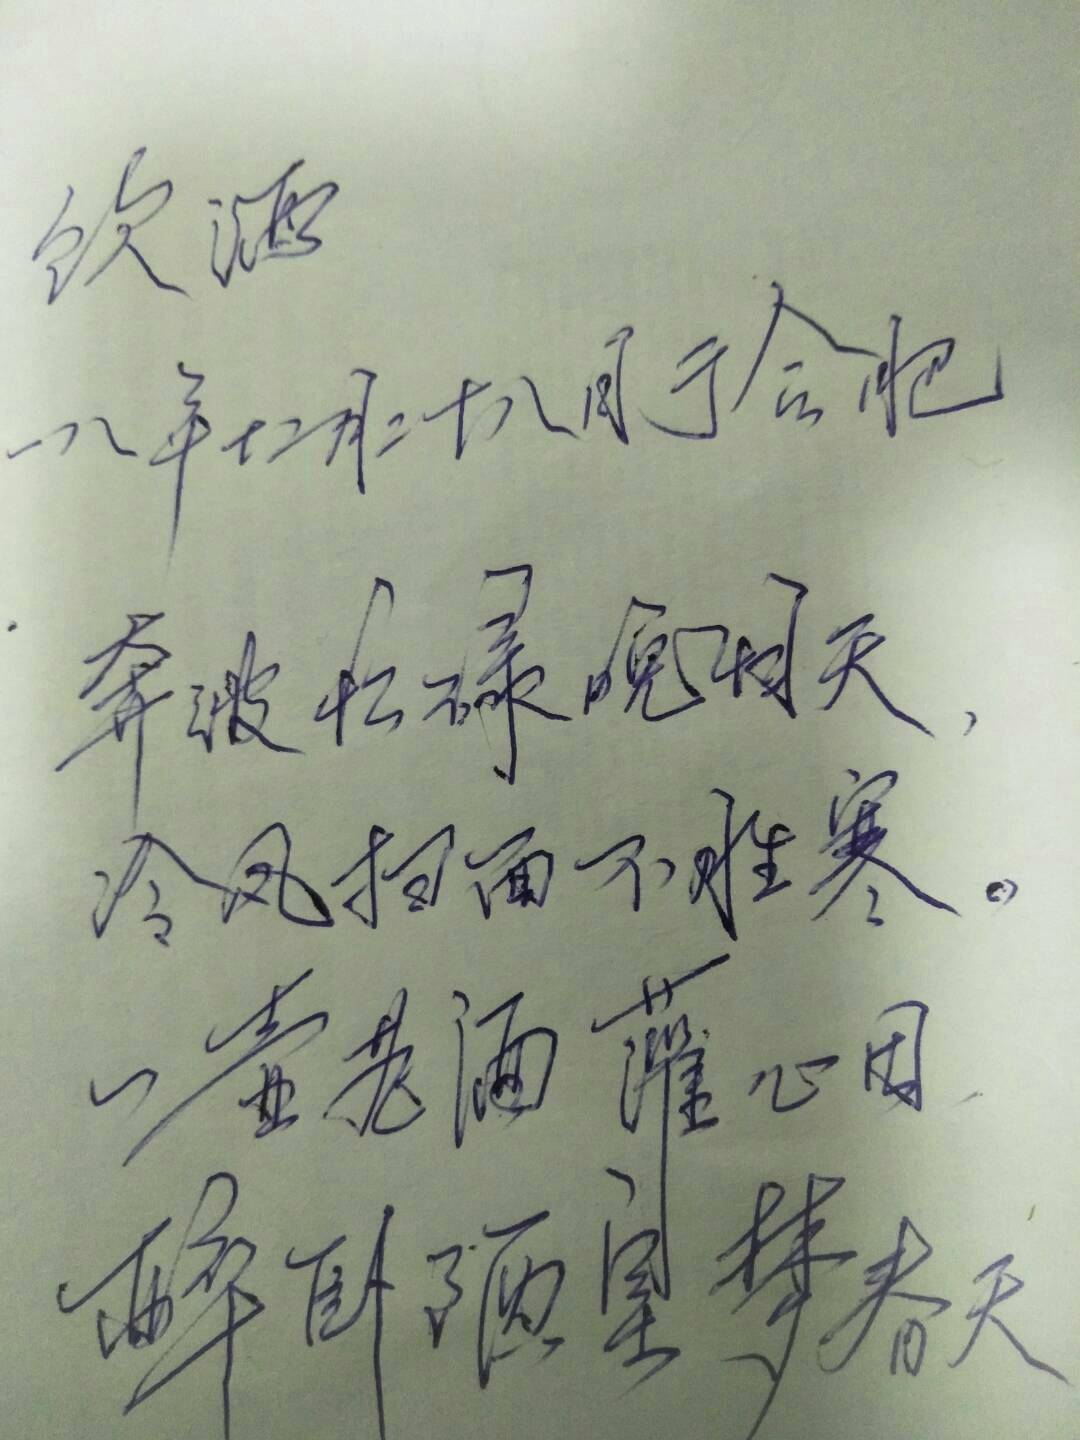 饮酒
一八年十二月二十八日于合肥
奔波忙碌晚晴天，
冷风扫面不胜寒。
一壶老酒灌心田
醉卧陋室梦春天